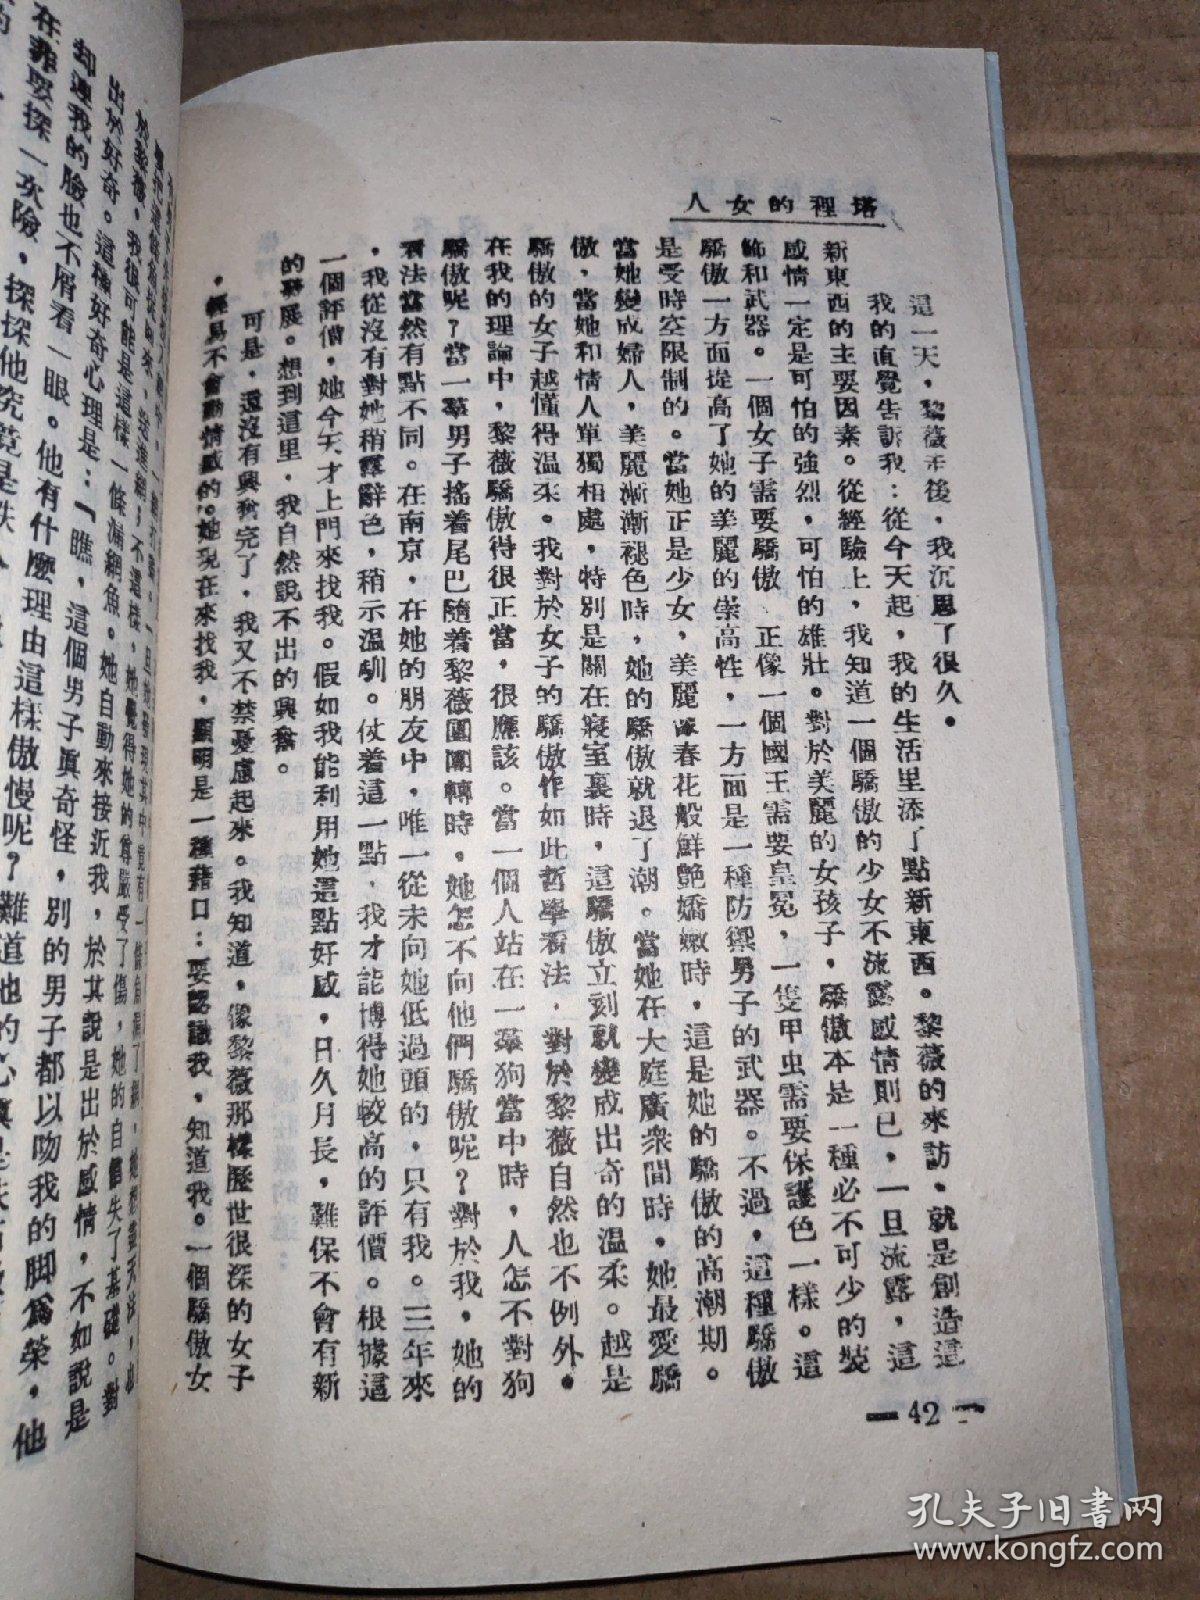 人女的裡塔
這一天，黎薇走後，我沉思了很久。
我的直覺告訴我：從今天起，我的生活里添了點新東西。黎薇的來訪，就是創造這
新東西的主要因素。從經驗上，我知道一個驕傲的少女不流露感情則已，一旦流露，這
感情一定是可怕的強烈，可怕的雄壯。對於美麗的女孩子，驕傲本是一種必不可少的裝
飾和武器。一個女子需要驕傲 正像一個國王需要皇冕，一隻甲虫需要保護色一樣。這
驕傲一方面提高了她的美麗的崇高性，一方面是一種防禦男子的武器。不過，這種驕傲
是受時空限制的。當她正是少女，美麗像春花般鮮艷嬌嫩時，這是她的驕傲的高潮期。
當她變成婦人，美麗漸漸褪色時，她的驕傲就退了潮。當她在大庭廣衆間時，她最愛驕
傲，當她和情人單獨相處，特別是關在寢室裏時，這驕傲立刻就變成出奇的温柔。越是
驕傲的女子越懂得温柔。我對於女子的驕傲作如此哲學看法，對於黎薇自然也不例外。
在我的理論中，黎薇驕傲得很正當，很應該。當一個人站在一羣狗當中時，人怎不對狗
驕傲呢？當一羣男子搖着尾巴隨着黎薇團團轉時，她怎不向他們驕傲呢？對於我，她的
看法當然有點不同。在南京，在她的朋友中，唯一從未向她低過頭的，只有我。三年來
，我從沒有對她稍露辭色，稍示温馴。仗着這一點，我才能博得她較高的評價。根據這
一個評價，她今天才上門來找我。假如我能利用她這點好感，日久月長，難保不會有新
的發展。想到這里，我自然說不出的興奮。
可是，還沒有興奮完了，我又不禁憂慮起來。我知道，像黎薇那樣歷世很深的女子
，輕易不會動情感的。她現在來找我，顯明是一種藉口：要認識我，知道我。一個驕傲女
42
出於好奇。這種好奇心理是：「瞧，這個男子眞奇怪，別的男子都以吻我的脚爲榮，他
却連我的臉也不屑看一眼。他有什麼理由這樣傲慢呢？難道他的心眞是
孔夫子旧书网
www.kongfz.com